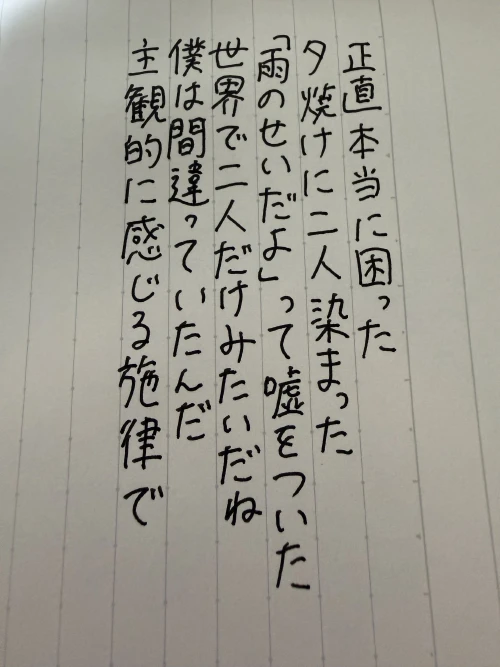 正直本当に困った
夕焼けに二人染まった
「雨のせいだよ」って嘘をついた
世界で二人だけみたいだね
僕は間違っていたんだ
主観的に感じる施律で